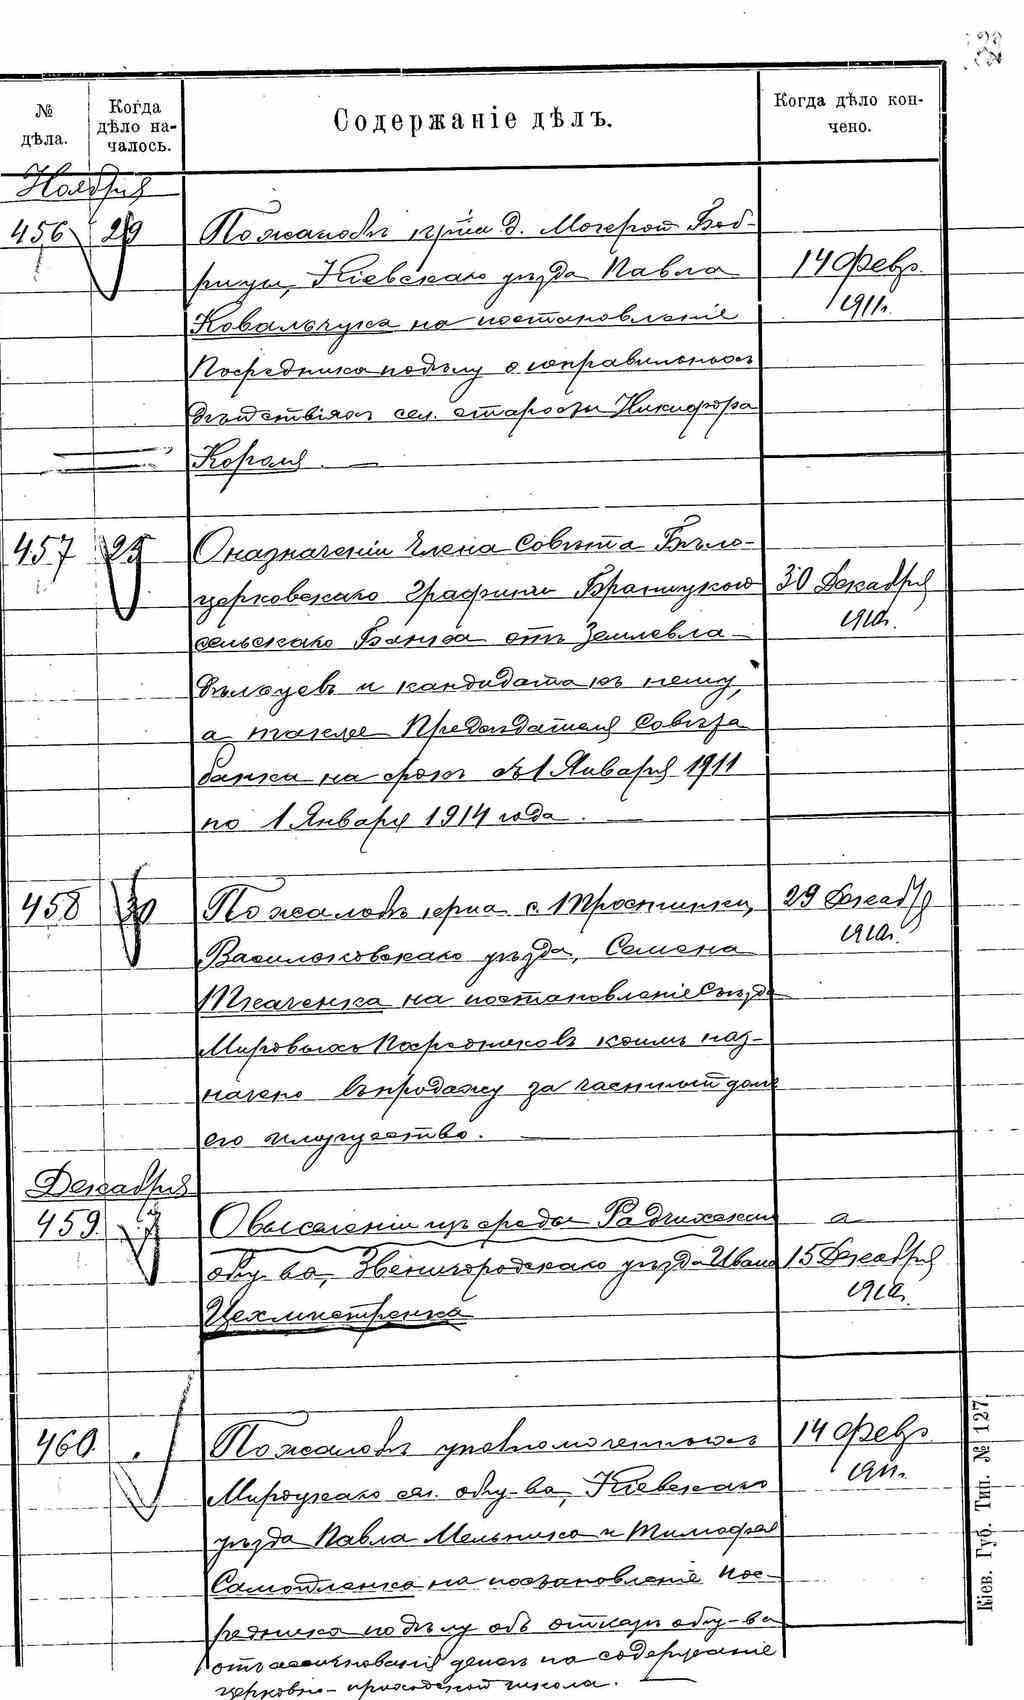 № дѣла.
Когда дѣло началось.
Содержаніе дѣлъ.
Когда дѣло кончено.
Ноября
456 29 По жалобѣ кр-на д. Мочерой Боб-
рицы, Кіевскаго уѣзда Павла
14 Февр. 1911г.
Ковальчука на постановленіе
Посредника по дѣлу о неправильныхъ
дѣйствіяхъ сел. старосты Никифора
Короля. —
457 25 О назначеніи Члена Совѣта Бѣло-
церковскаго Графини Браницкой
30 Декабря 1910г.
сельскаго Банка отъ Землевла-
дѣльцевъ и кандидата къ нему,
а также Предсѣдателя Совѣта
банка на срокъ съ 1 Января 1911
по 1 Января 1914 года. —
458 30 По жалобѣ кр-на с. Тростинки,
29 Декабр 1910г.
Васильковскаго уѣзда, Семена
Ткаченка на постановленіе Съѣзда
Мировыхъ Посредниковъ коимъ наз-
начено въ продажу за частный долгъ
его имущество. —
Декабря
459. О выселеніи изъ среды Радчихскаго
а
общ-ва, Звенигородскаго уѣзда Ивана
15 Декабря 1910г.
Цехмистренка
460. По жалобѣ уполномоченныхъ
14 Февр. 1911г.
Мироцкаго сел. общ-ва, Кіевскаго
уѣзда Павла Мельника и Тимофея
Самойленка на постановленіе Пос-
редника по дѣлу объ отказѣ общ-ва
отъ ассигнованія денегъ на содержаніе
церковно-приходской школы. —
Кіев. Губ. Тип. № 127.